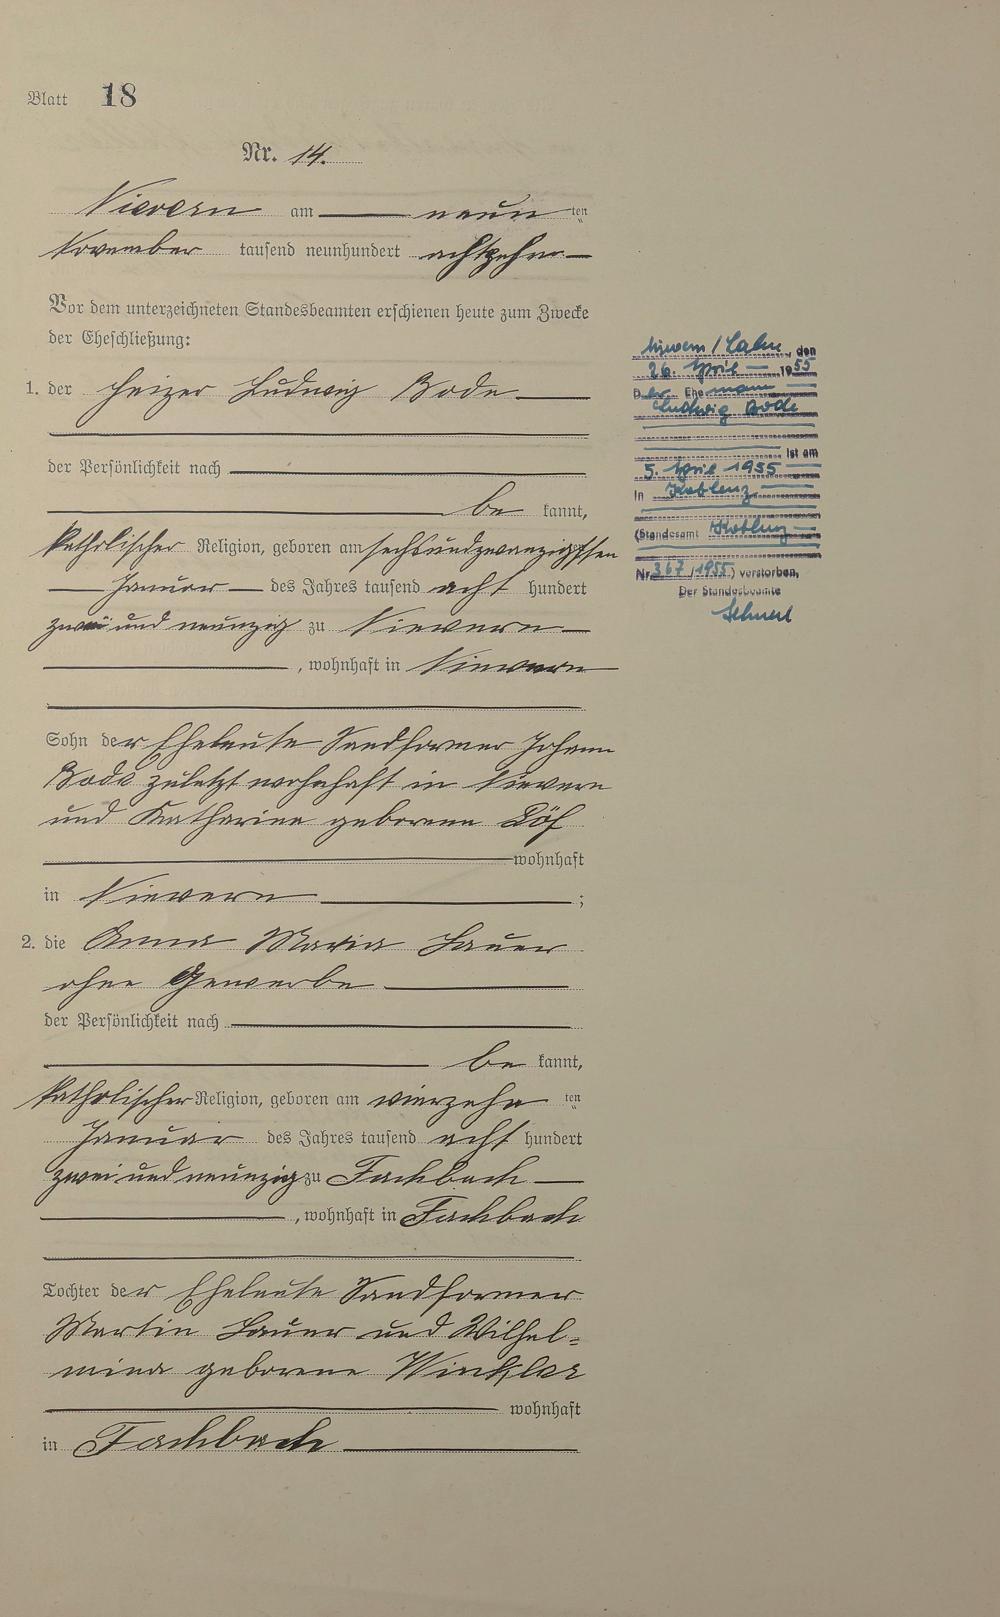 Blatt 18
Nr. 14.
Nievern am neun ten
November tausend neunhundert achtzehn
Vor dem unterzeichneten Standesbeamten erschienen heute zum Zwecke
der Eheschließung:
1. der Heizer Ludwig Bode
der Persönlichkeit nach
be kannt,
katholischer Religion, geboren am sechsundzwanzigsten
Januar des Jahres tausend acht hundert
zwei und neunzig zu Nievern
, wohnhaft in Nievern
Sohn der Eheleute Sandformer Johann
Bode zuletzt wohnhaft in Nievern
und Katharina geborene Löf
wohnhaft
in Nievern ;
2. die Anna Maria Lauer
ohne Gewerbe
der Persönlichkeit nach
be kannt,
katholischer Religion, geboren am vierzehn ten
Januar des Jahres tausend acht hundert
zwei und neunzig zu Fachbach
, wohnhaft in Fachbach
Tochter der Eheleute Sandformer
Martin Lauer und Wilhel-
mina geborene Winkler
wohnhaft
in Fachbach
Nievern / Lahn, den
26. April 1955
Der Ehemann
Ludwig Bode
ist am
5. April 1955
in Koblenz
(Standesamt Koblenz
Nr. 367/1955) verstorben.
Der Standesbeamte